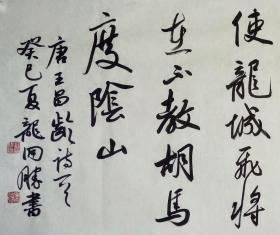 使龍城飛將
在不教胡馬
度陰山
唐王昌齡詩一首
癸巳夏龍開勝書